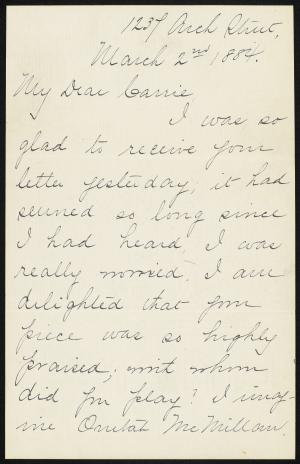 1237 Arch Street,
March 2nd 1884.
My Dear Carrie
I was so
glad to receive your
letter yesterday; it had
seemed so long since
I had heard, I was
really worried. I am
delighted that your
piece was so highly
praised; with whom
did you play? I imag-
ine McMillan.